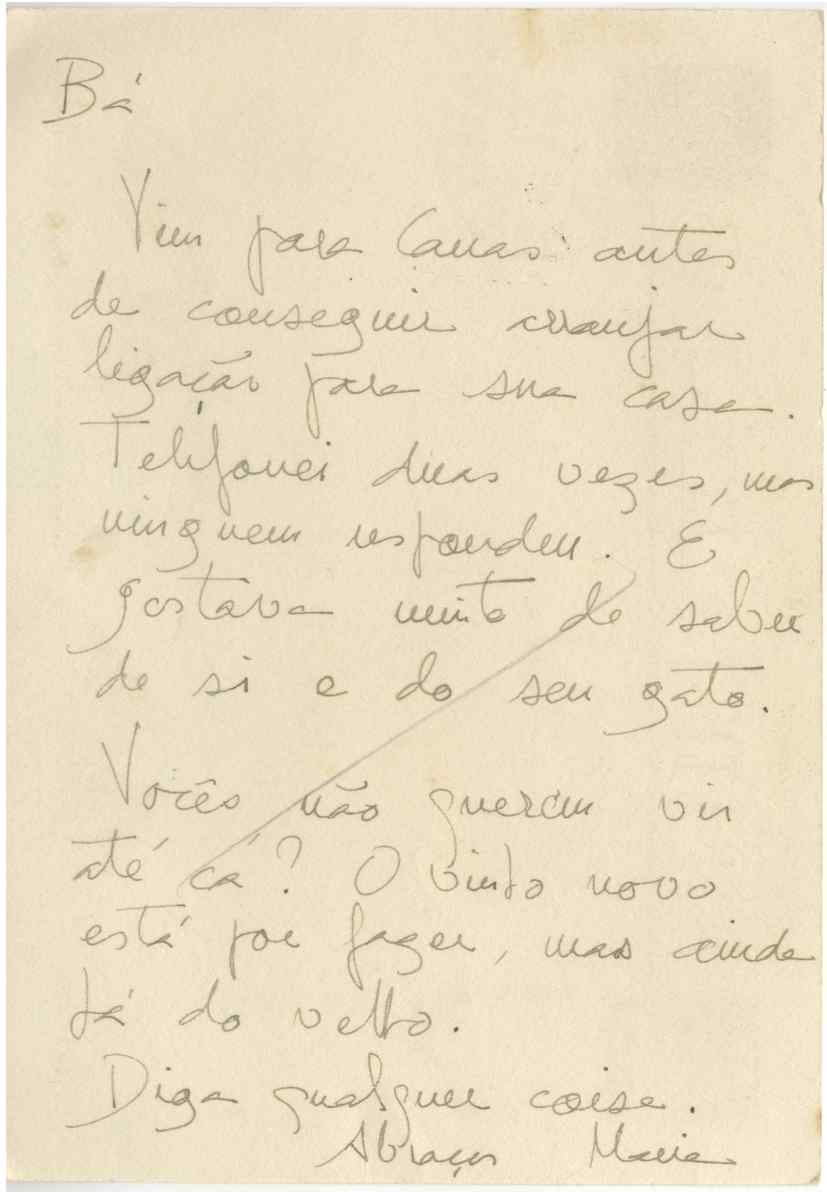 Bá
Vim para Canas antes
de conseguir arranjar
ligação para sua casa.
Telefonei duas vezes, mas
ninguem respondeu. E
gostava muito de saber
de si e do seu gato.
Vocês não querem vir
até cá? O vinho novo
está por fazer, mas ainda
há do velho.
Diga qualquer coisa.
Abraços Maria